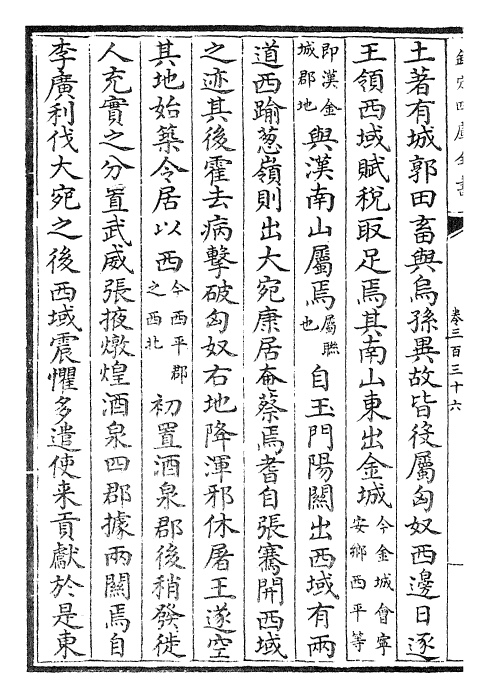 欽定四庫全書
卷三百三十六
土著有城郭田畜與烏孫異故皆役屬匈奴西邊日逐
王領西域賦稅取足焉其南山東出金城今金城會寧安鄉西平等
即漢金城郡地與漢南山屬焉屬聮也自玉門陽關出西域有兩
道西踰葱嶺則出大宛康居奄蔡焉耆自張騫開西域
之迹其後霍去病擊破匈奴右地降渾邪休屠王遂空
其地始築令居以西今西平郡之西北初置酒泉郡後稍發徙
人充實之分置武威張掖燉煌酒泉四郡據兩關焉自
李廣利伐大宛之後西域震懼多遣使来貢獻於是東